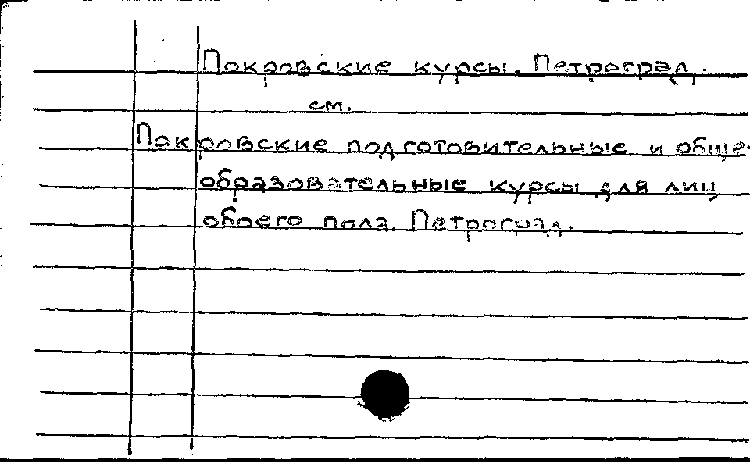 Покровские курсы. Петроград.
см.
Покровские подготовительные и обще-
образовательные курсы для лиц
обоего пола. Петроград.